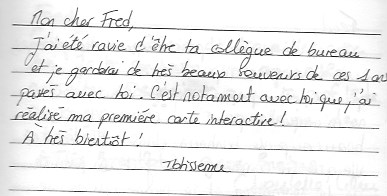 Mon cher Fred,
J'ai été ravie d'être ta collègue de bureau
et je garderai de très beaux souvenirs de ces 1 an
passés avec toi. C'est notamment avec toi que, j'ai
réalisé ma première carte interactive !
A très bientôt !
Ibtisseme